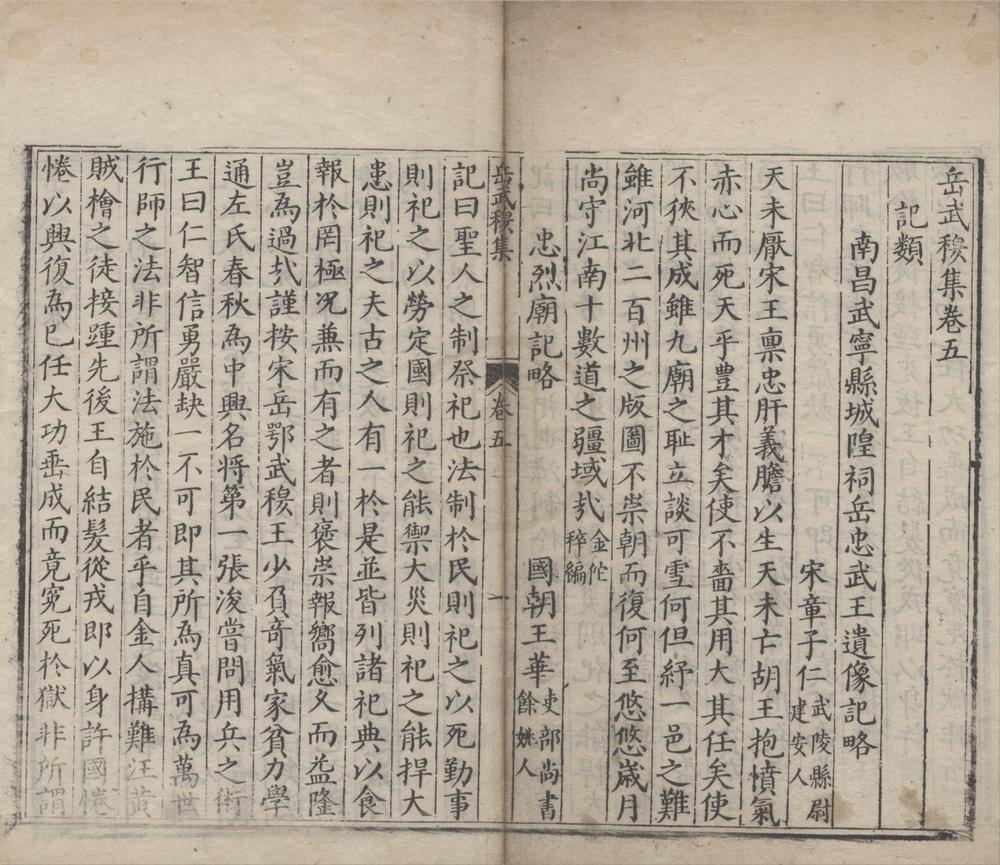 岳武穆集卷五
記類
南昌武寧縣城隍祠岳忠武王遺像記略
宋章子仁武陵縣尉建安人
天未厭宋王禀忠肝義膽以生天未亡胡王抱憤氣
赤心而死天乎豊其才矣使不嗇其用大其任矣使
不狹其成雖九廟之耻立談可雪何但紓一邑之難
雖河北二百州之版圖不崇朝而復何至悠悠歲月
尚守江南十數道之疆域㢤金佗稡編
忠烈廟記略
國朝王華吏部尚書餘姚人
岳武穆集
卷五
一
記曰聖人之制祭祀也法制於民則祀之以死勤事
則祀之以勞定國則祀之能禦大災則祀之能捍大
患則祀之夫古之人有一於是並皆列諸祀典以食
報於罔極况兼而有之者則褒崇報嚮愈乆而益隆
豈為過㢤謹按宋岳鄂武穆王少負竒氣家貧力學
通左氏春秋為中興名将第一張浚嘗問用兵之術
王曰仁智信勇嚴缺一不可即其所為真可為萬世
行師之法非所謂法施於民者乎自金人構難汪黄
賊檜之徒接踵先後王自結髮從戎即以身許國惓
惓以興復為已任大功垂成而竟寃死於獄非所謂